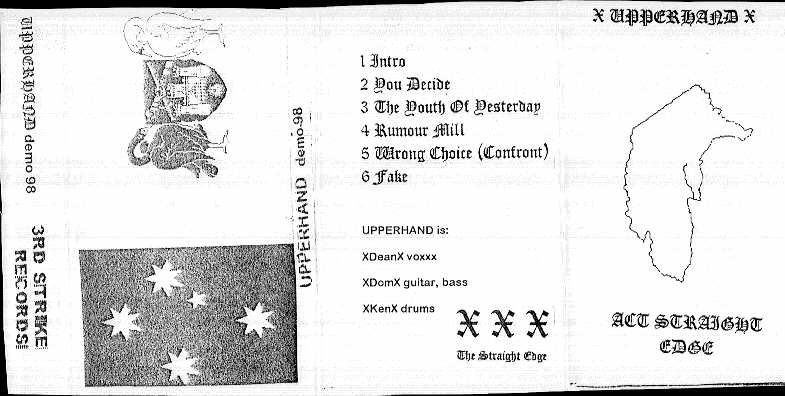 UPPERHAND demo 98
3RD STRIKE
RECORDS
UPPERHAND demo-98
1 Intro
2 You Decide
3 The Youth Of Yesterday
4 Rumour Mill
5 Wrong Choice (Confront)
6 Fake
UPPERHAND is:
XDeanX voxxx
XDomX guitar, bass
XKenX drums
X X X
The Straight Edge
X UPPERHAND X
ACT STRAIGHT
EDGE